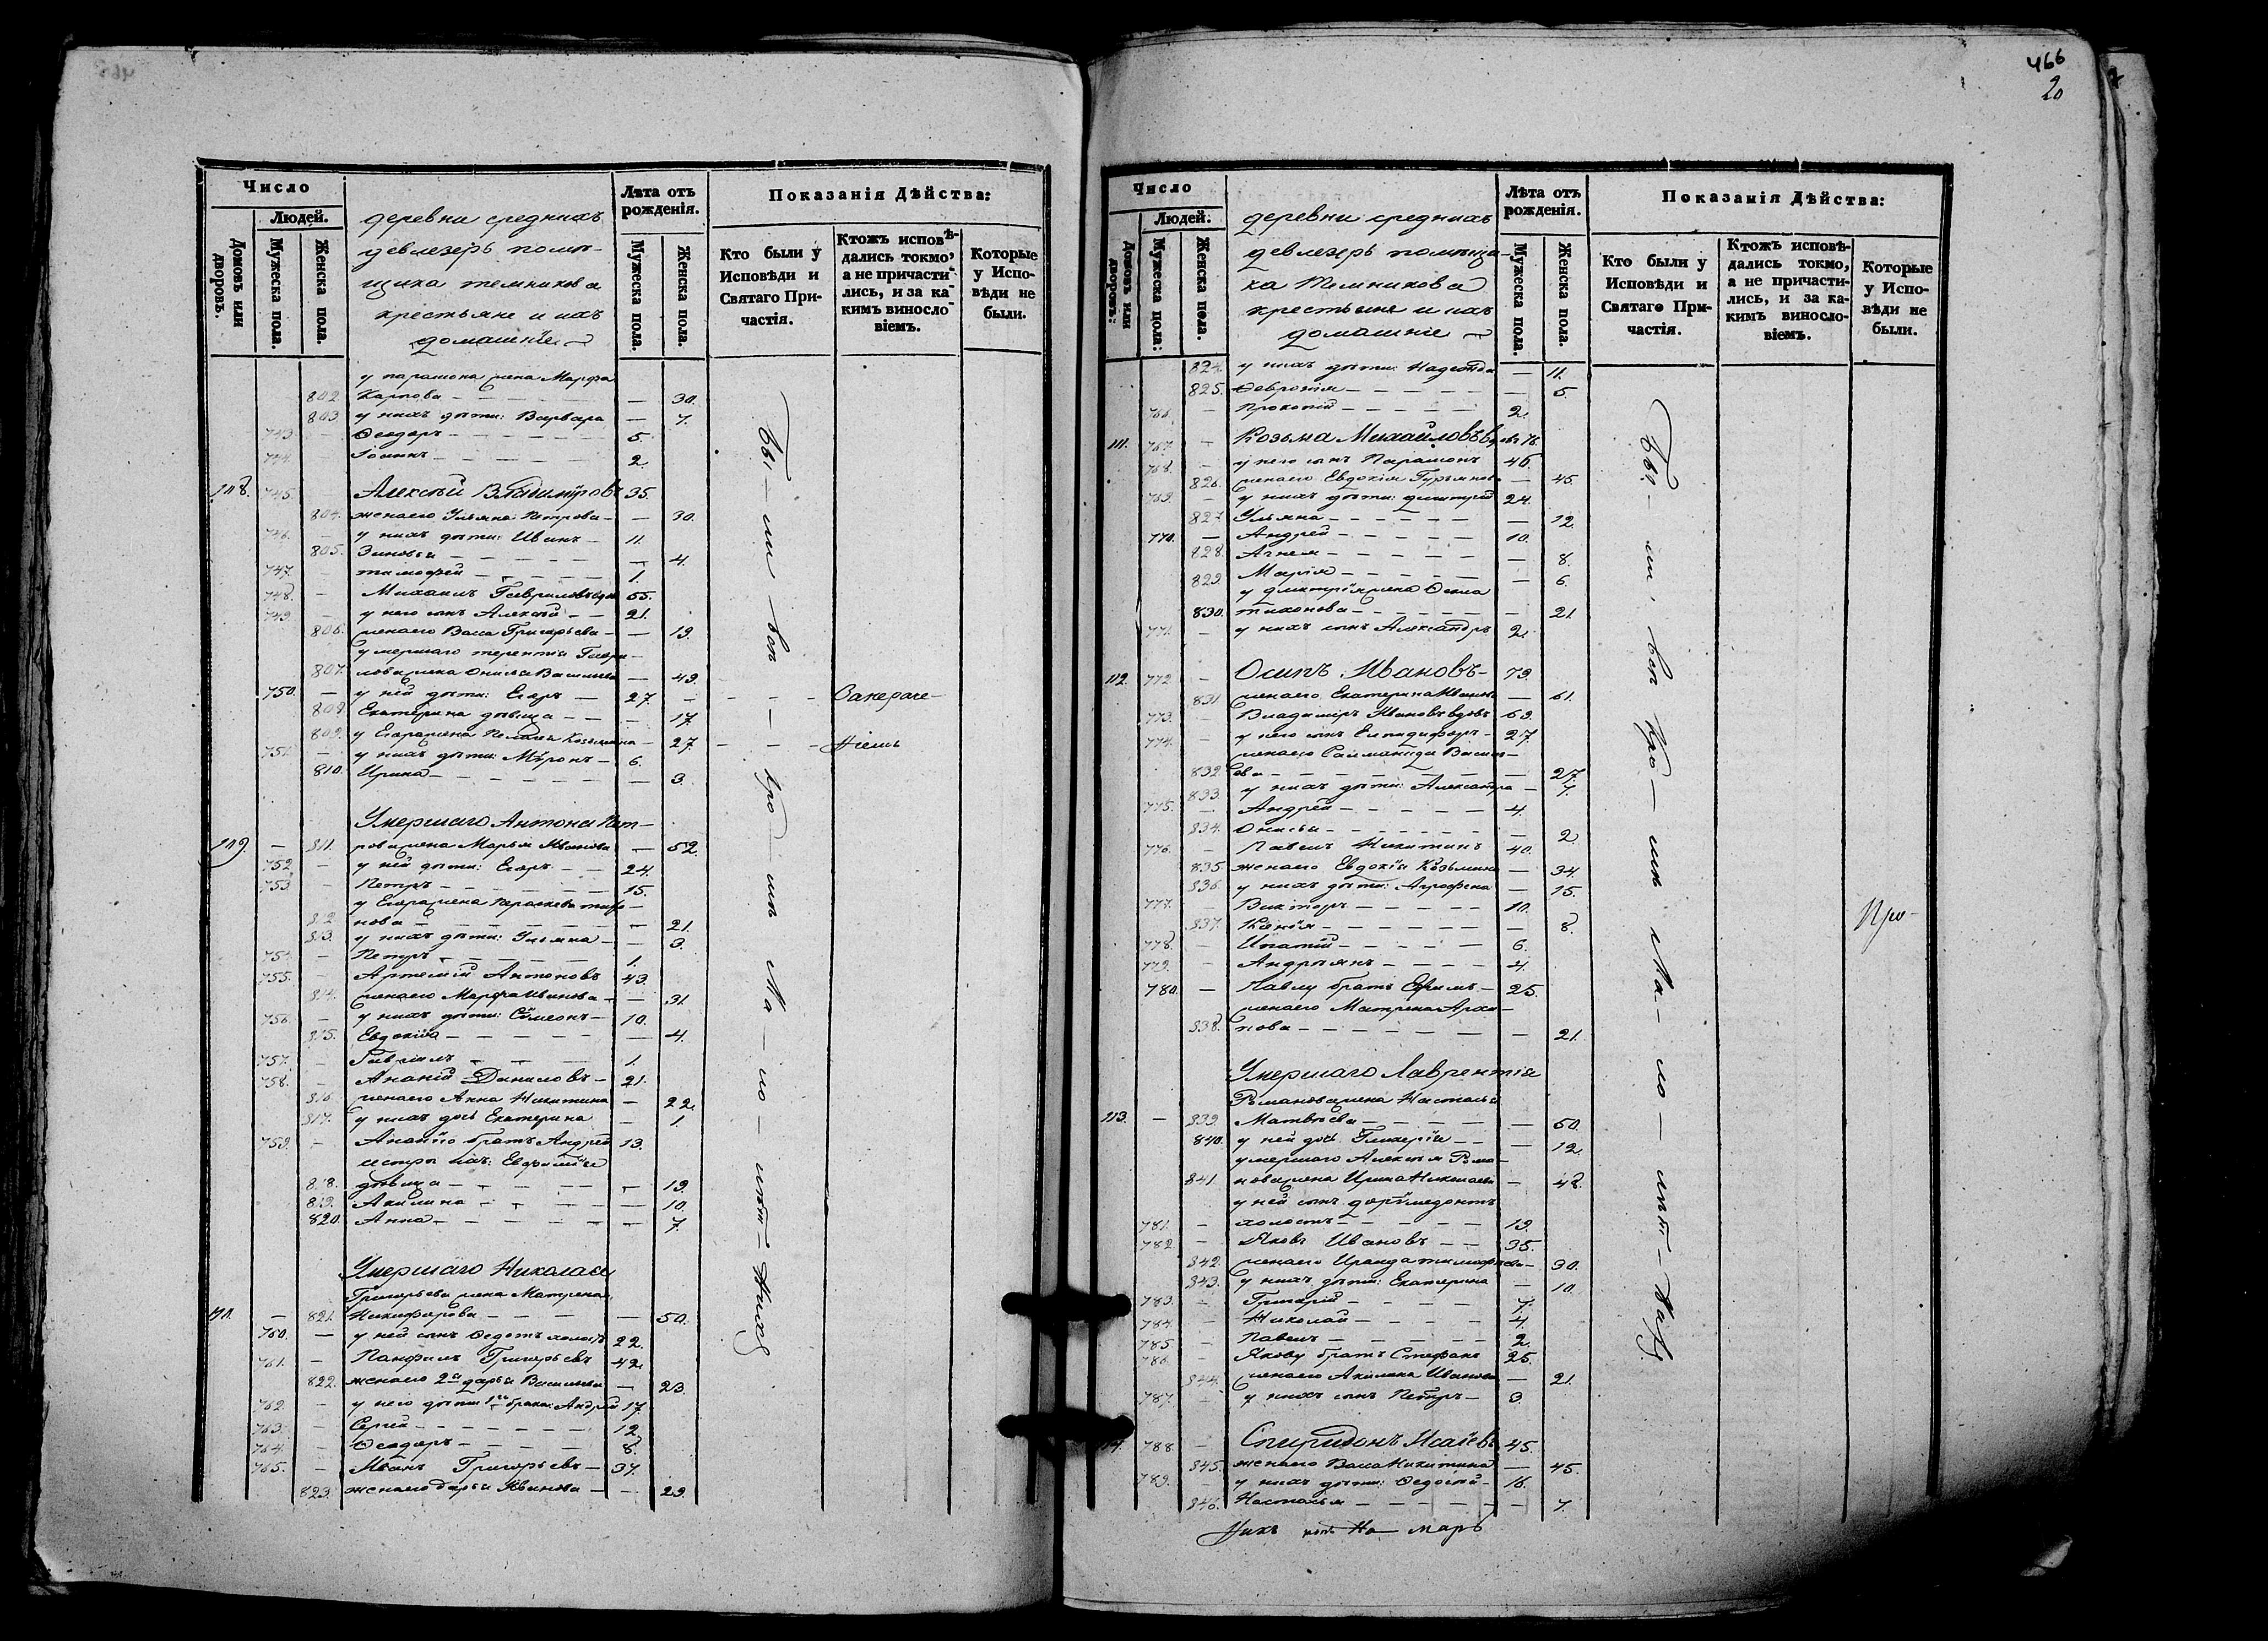 466
20
Число
Людей.
Домовъ или дворовъ.
Мужеска пола.
Женска пола.
деревни среднихъ
девлезерь помѣ-
щика темникова
крестьяне и ихъ
домашніе
Лѣта отъ рожденія.
Мужеска пола.
Женска пола.
Показанія Дѣйства:
Кто были у Исповѣди и Святаго Причастія.
Ктожъ исповѣдались токмо, а не причастились, и за какимъ винословіемъ.
Которые у Исповѣди не были.
у парамона жена Марфа
802 Карпова — — 30.
803 у нихъ дѣти: Варвара — 7.
743 Ѳеодоръ — 5.
744. Іоаннъ — 2.
108. 745. Алексѣй Владиміровъ 35.
804. жена его Ульяна Петрова — — 30.
746. у нихъ дѣти: Иванъ — 11.
805. Зиновья — — 4.
747. тимофей — 1.
748. Михаилъ Гавриловъ вдов 55.
749. у него сынъ Алексѣй — 21.
806. жена его Васа Григорьева — — 19.
умершаго терентія Гаври-
807. лова жена Онисья Васильева — 49.
750. — у ней дѣти: Егоръ — 27. — — — — Занераче-
808. Екатерина дѣвица — — 17.
809. у Егора жена Пелагея Козьмина — 27 — — — ніемъ
751. — у нихъ дѣти: Мѵронъ — 6.
810. Ирина — — 3.
Умершаго Антона Пет-
109. — 811. рова жена Марья Иванова — 52.
752. — у ней дѣти: Егоръ — — 24.
753 — Петръ — 15.
у Егора жена Параскева тихо-
812 нова — — 21.
813. у нихъ дѣти: Ульяна — — 3.
754. — Петръ — 1.
755. — Артемій Антоновъ 43.
814. жена его Марфа Иванова — — 31.
756. — у нихъ дѣти: Сѵмеонъ — 10.
815. Евдокія — — 4.
757. — Гавріилъ — 1.
758. — Ананій Даниловъ — 21.
816 жена его Анна Никитина — 22.
817. у нихъ дочь Екатерина — 1.
759. — Ананію братъ Андрей 13.
сестры ихъ: Евфимія
818. дѣвица — — 19.
819. Акилина — — 10.
820. Анна — — 7.
Умершаго Николая
Григорьева жена Матрена
110. — 821. Никифорова — — 50.
760. — у ней сынъ Ѳедотъ холостъ 22.
761. — Панфилъ Григорьевъ 42.
822. жена его 2я дарья Васильева — 23.
762. — у него дѣти 1го брака: Андрей 17.
763. — Сергей — 12
764. — Ѳеодоръ — 8.
765. — Иванъ Григорьевъ — 37.
823. жена его дарья Иванова — — 29.
Бы — ли во
вро — мъ
Число
Людей.
Домовъ или дворовъ:
Мужеска пола:
Женска пола.
деревни среднихъ
девлезерь помѣщи-
ка Темникова
крестьяне и ихъ
домашніе
Лѣта отъ рожденія.
Мужеска пола.
Женска пола.
Показанія Дѣйства:
Кто были у Исповѣди и Святаго Причастія.
Ктожъ исповѣдались токмо, а не причастились, и за какимъ винословіемъ.
Которые у Исповѣди не были.
824. у нихъ дѣти: Надежда — 11.
825. Ѳевронія — — 5.
766. — Прокопій — 2.
111. 767. — Козьма Михайловъ вдовъ 76.
768. — у него сынъ Парамонъ 46.
826. жена его Евдокія Гурьянова — 45.
769. — у нихъ дѣти: дмитрій 24.
827. Ульяна — — 12.
770. — Андрей — 10.
828. Агнея — — 8.
829 Марія — — 6.
у дмитрія жена Ѳекла
830. тихонова — — 21.
771. — у нихъ сынъ Александръ 2.
112. 772 — Осипъ Ивановъ — 79.
831 жена его Екатерина Иванова — 61.
773. — Владиміръ Ивановъ вдовъ 63.
774. — у него сынъ Елпидифоръ — 27.
832 ева — — 27.
833. у нихъ дѣти: Александра — 7.
775. — Андрей — 4.
834. Онисья — — 2
776. — Павелъ Никитинъ 40.
835 жена его Евдокія Козьмина — 34.
836 у нихъ дѣти: Агрофена — 15.
777. — Викторъ — 10.
837. Ксенія — — 8.
778. — Ипатій — 6.
779. — Андрьянъ — 4.
780. — Павлу братъ Ефимъ — 25.
жена его Матрена Архи-
838. пова — — 21.
Умершаго Лаврентія
Романова жена Настасья
113. — 839. Матвѣева — — 50.
840. у ней дочь Гликерія — — 12.
умершаго Алексѣя Рома-
841. нова жена Ирина Николаева — 48.
у ней сынъ дорѵмедонтъ
781. — холостъ — 19.
782. — Яковъ Ивановъ — — 35.
842. жена его Ираида тимофѣева — 30.
843. у нихъ дѣти: Екатерина — 10.
783. — Григорій — 7.
784. — Николай — 4.
785. — Павелъ — 2.
786. — Якову братъ Стефанъ 25.
844. жена его Акилина Иванова — 21.
787. — у нихъ сынъ Петръ — 3.
114. 788. — Спиридонъ Исаіевъ 45.
845. жена его Васа Никитина — 45.
789. — у нихъ дѣти: Ѳедосѣй — 16.
846. Настасья — — 7.
Про-